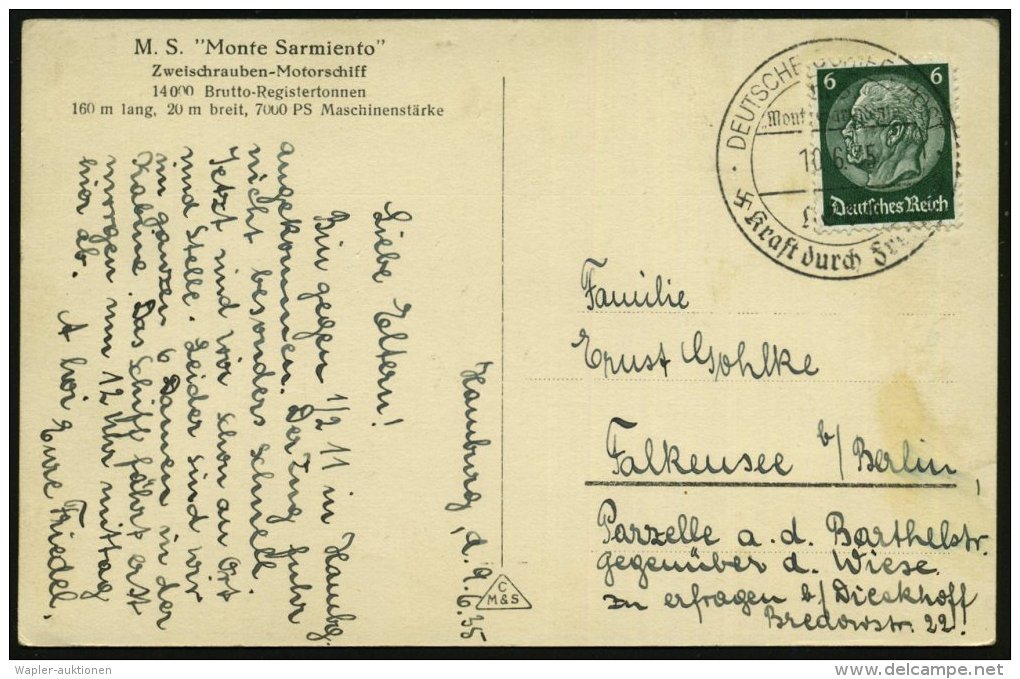 M. S. "Monte Sarmiento"
Zweischrauben-Motorschiff
14000 Brutto-Registertonnen
160 m lang, 20 m breit, 7000 PS Maschinenstärke
Hamburg, d. 9.6.35
Liebe Eltern!
Bin gegen 1/2 11 in Hambg.
angekommen. Der Zug fuhr
nicht besonders schnell.
Jetzt sind wir schon an Ort
und Stelle. Leider sind wir
im ganzen 6 Damen in der
Kabine. Das Schiff fährt erst
morgen um 12 Uhr mittag
hier ab. A hoi
Eure Friedel.
C
M&S
DEUTSCHE
10.6.35
卐 Kraft durch
6 6
Deutsches Reich
Familie
Ernst Gohlke
Falkensee b/ Berlin,
Parzelle a. d. Barthelstr.
gegenüber d. Wiese
zu erfragen b/ Dieckhoff
Bredowstr. 22.
Wapler-auktionen
delcampe.net